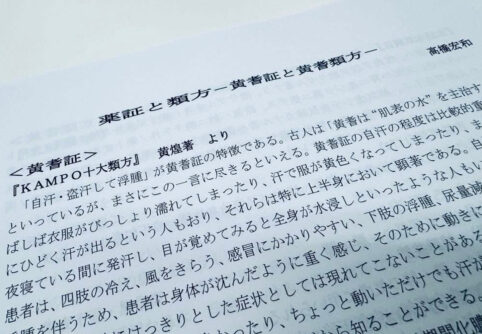 薬証と類方－黄耆証と黄耆類方－
高橋宏和
＜黄耆証＞
『KAMPO十大類方』 黄煌著 より
「自汗・盗汗して浮腫」が黄耆証の特徴である。古人は「黄耆は“肌表の水”を主治す
といっているが、まさにこの一言に尽きるといえる。黄耆証の自汗の程度は比較的重
ばしば衣服がびっしょり濡れてしまったり、汗で服が黄色くなってしまったり、ま
にひどく汗が出るという人もおり、それらは特に上半身において顕著である。自
夜寝ている間に発汗し、目が覚めてみると全身が水浸しといったような人もい
患者は、四肢の冷え、風をきらう、感冒にかかりやすい、下肢の浮腫、尿量減
腫を伴うため、患者は身体が沈んだように重く感じ、そのために動きに
はっきりとした症状としては現れてこないことがある
かったり、ちょっと動いただけでも汗が
から知ることができる。